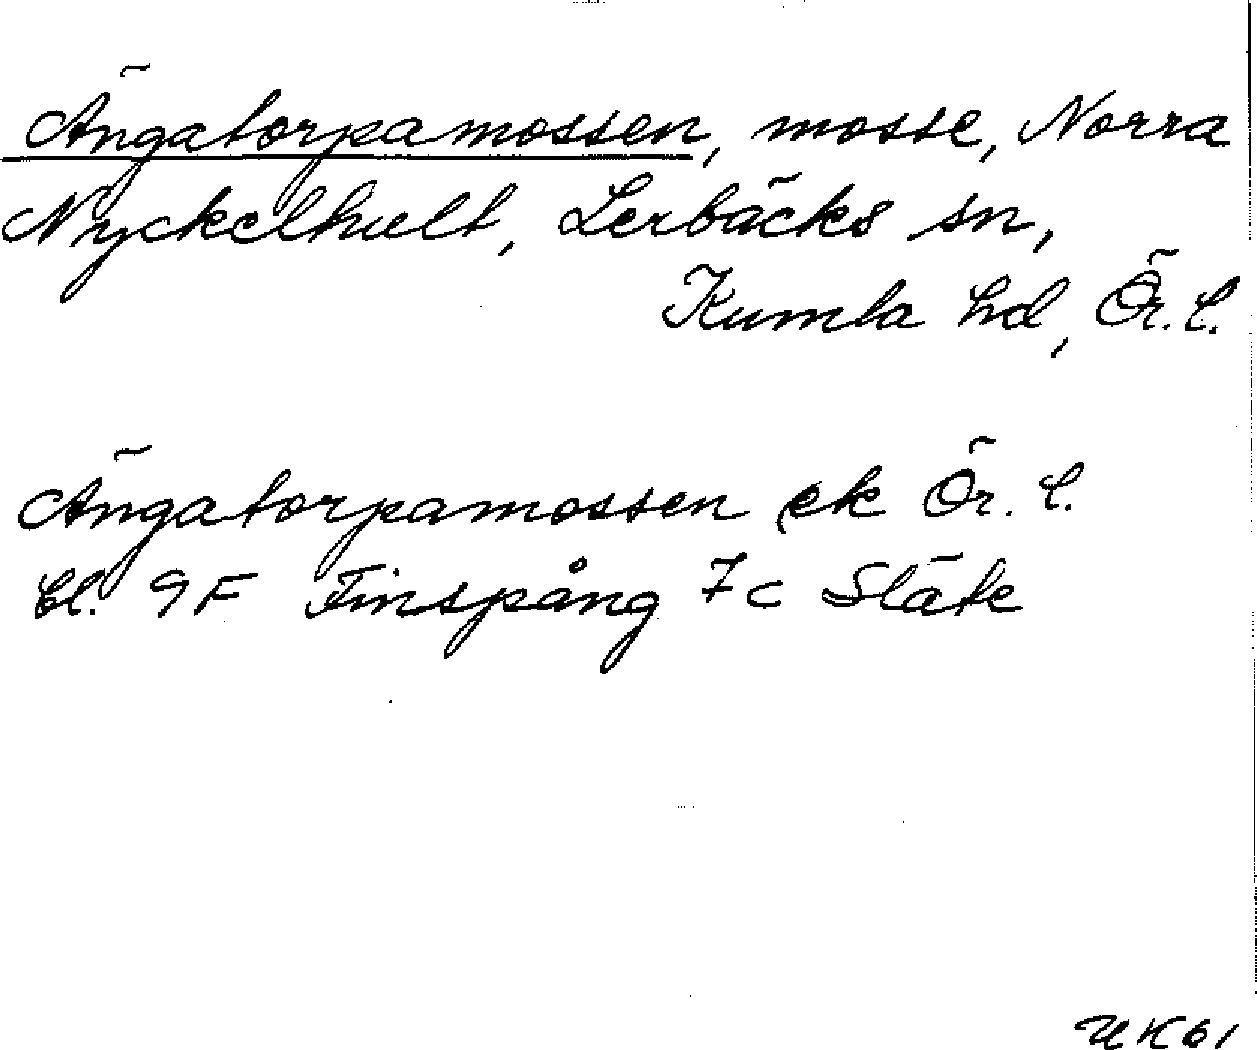 Ängatorpamossen, mosse, Norra
Nyckelhult, Lerbäcks sn,
Kumla hd, Ör. l.
Ängatorpamossen ek Ör. l.
bl. 9F Finspång 7c Släte
UK61